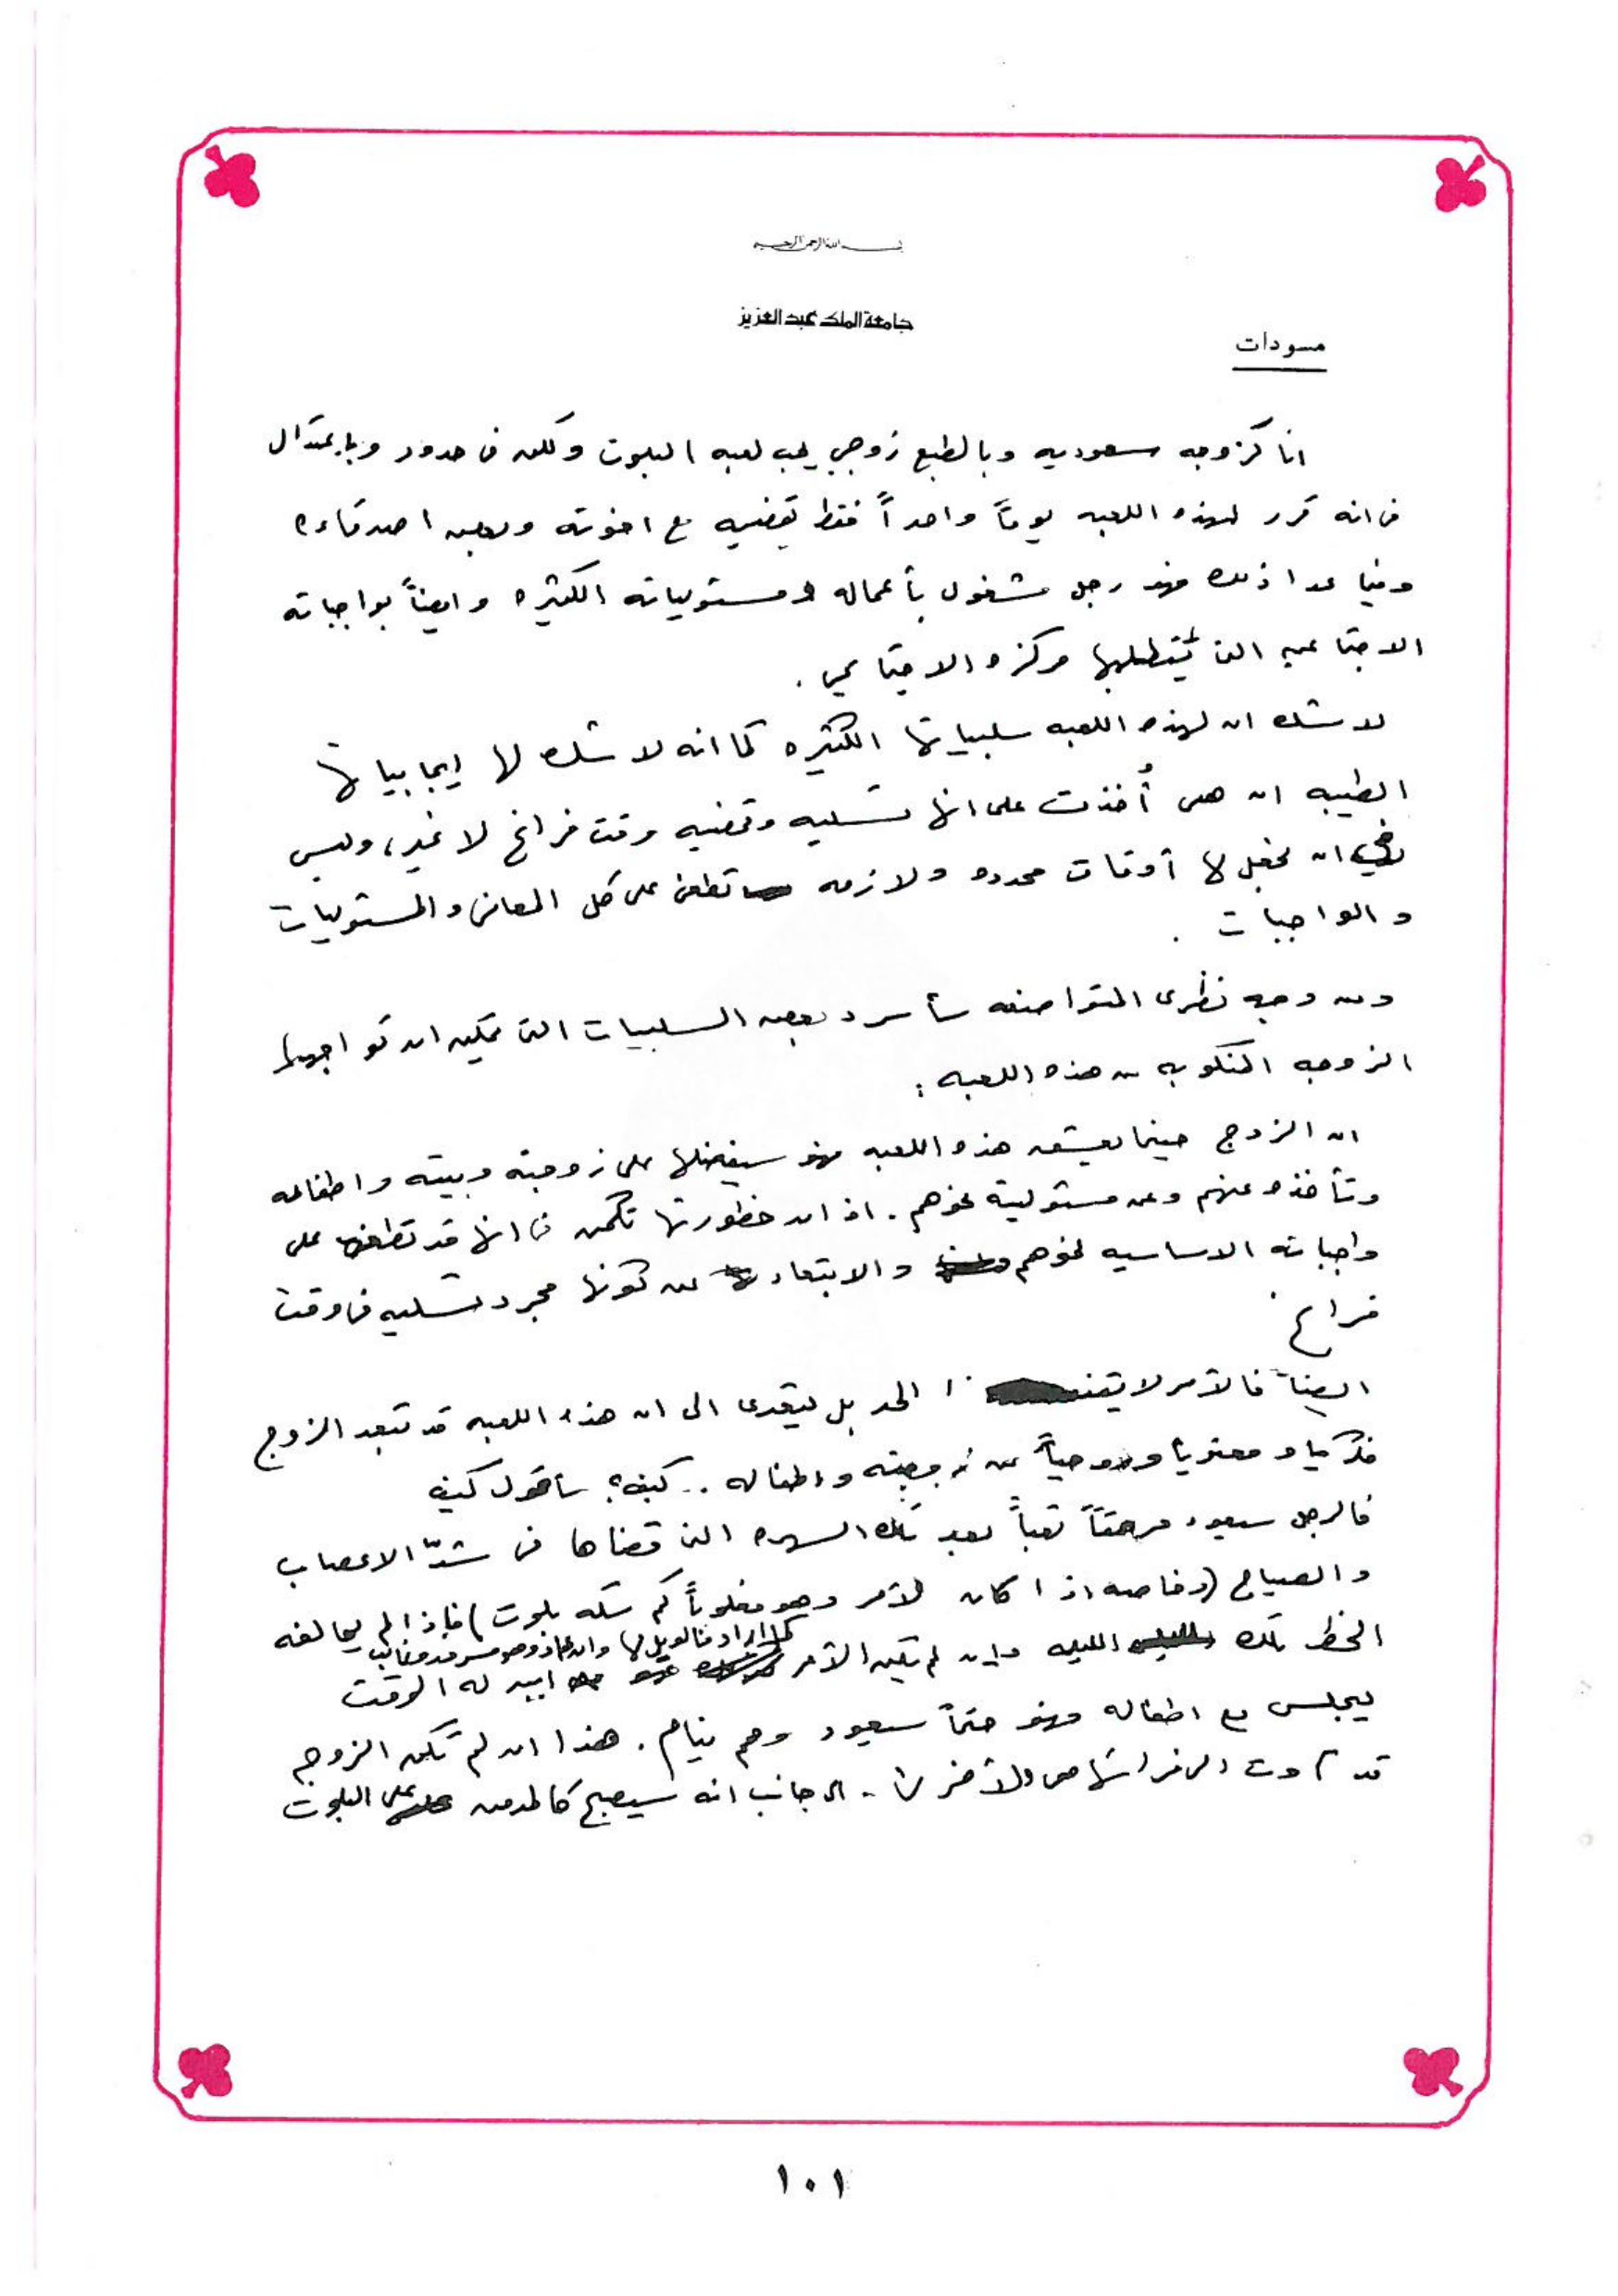 بسم الله الرحمن الرحيم
جامعة الملك عبد العزيز
مسودات
انا كزوجه سعوديه وبالطبع زوجي يحب لعبه البلوت ولكن في حدود وباعتدال
في انه قرر لهذه اللعبه يوماً واحداً فقط يقضيه مع اخوته وبعض اصدقاءه
وفيما عدا ذلك فهو رجل مشغول بأعماله ومسئولياته الكثيره وايضاً بواجباته
الاجتماعيه التي يتطلبها مركزه الاجتماعي .
لا شك ان لهذه اللعبه سلبياتها الكثيره كما انه لا شك لها إيجابياتها
الطيبه ان هي أُخذت على انها تسليه وتمضيه وقت فراغ لا غير، وليس
في ان نجعل لها أوقات محدده ولازمه تطغى على كل المعاني والمسئوليات
والواجبات .
ومن وجهة نظري المتواضعه سأسرد بعض السلبيات التي يمكن ان تواجهها
الزوجه المنكوبه من هذه اللعبه :
ان الزوج حينما يعشق هذه اللعبه فهو سيفضلها على زوجته وبيته واطفاله
وتأخذه عنهم وعن مسئوليته نحوهم . اذ ان خطورتها تكمن في انها قد تطغى على
واجباته الاساسيه نحوهم والابتعاد عن كونها مجرد تسليه في وقت
فراغ .
ايضاً فالأمر لا يقف الحد بل يتعدى الى ان هذه اللعبه قد تبعد الزوج
فكرياً ومعنوياً وروحياً عن زوجته واطفاله .. كيف؟ سأقول كيف
فالرجل سيعود مرهقاً تعباً بعد تلك السهره التي قضاها في شدّ الاعصاب
والصياح (وخاصه اذا كان الأمر وهو مغلوباً كم سكه بلوت) فإذا لم يحالفه
الحظ تلك الليله وإن لم يكن الأمر كما اراد فالويل لها وان عاد وهو مسرور فمن اين له الوقت
ليجلس مع اطفاله فهو حتماً سيعود وهم نيام . هذا ان لم تكن الزوج
قد آوت الى فراشها هي الأخرى . الى جانب انه سيصبح كالمدمن على البلوت
١٠١